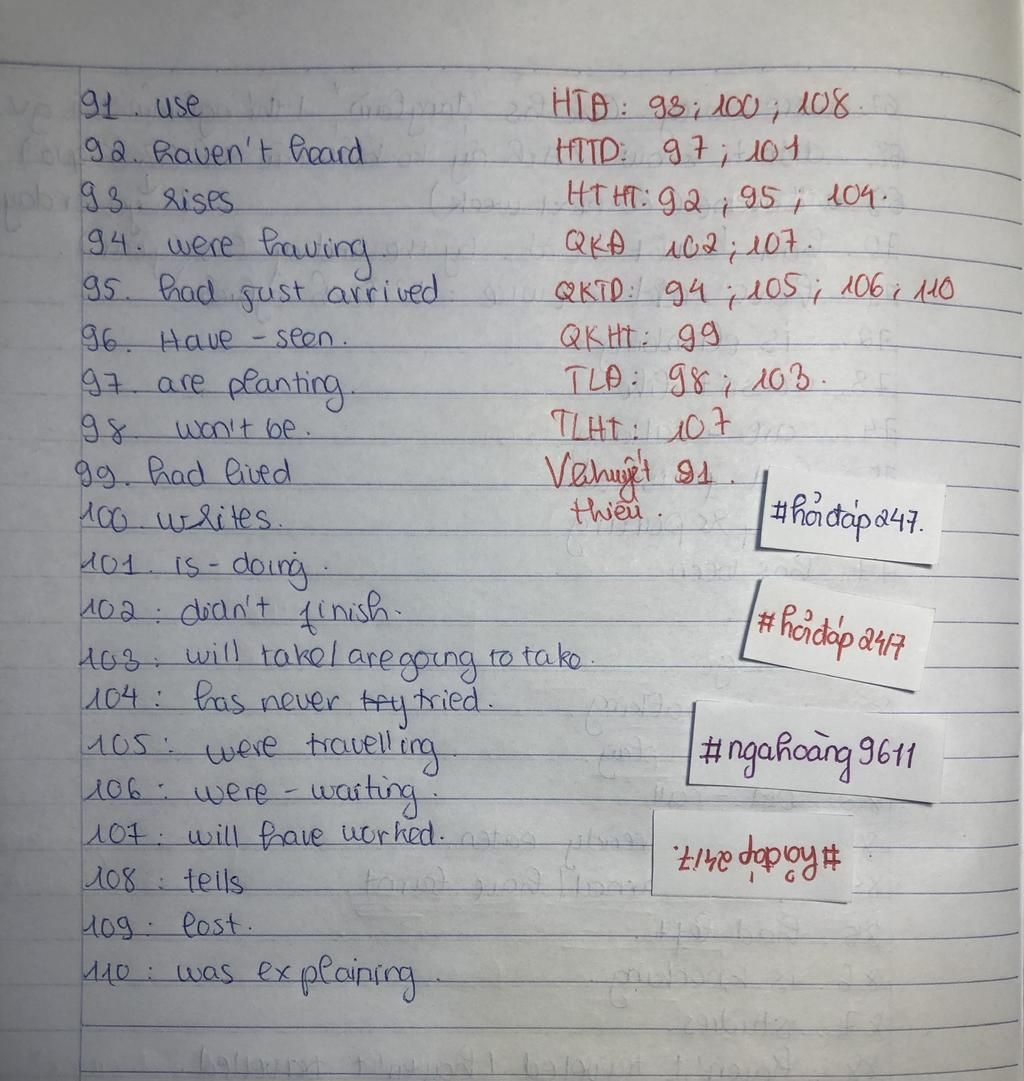 91. use
92. haven't heard
93. rises
94. were having
95. had just arrived
96. Have – seen.
97. are planting.
98. won't be.
99. had lived
100. writes.
101. is - doing.
102: didn't finish.
103: will take/are going to take.
104: has never try tried.
105: were travelling
106: were - waiting.
107: will have worked.
108: tells
109: lost.
110: was explaining.
HTĐ: 93; 100; 108.
HTTD: 97; 101
HTHT: 92; 95; 104.
QKĐ 102; 107.
QKTD: 94; 105; 106; 110
QKHT: 99
TLĐ: 98; 103.
TLHT: 107
V khuyết 91.
thiếu.
#hỏiđáp247.
#hỏiđáp 24/7
#ngahoàng9611
#hỏiđáp 24/7.